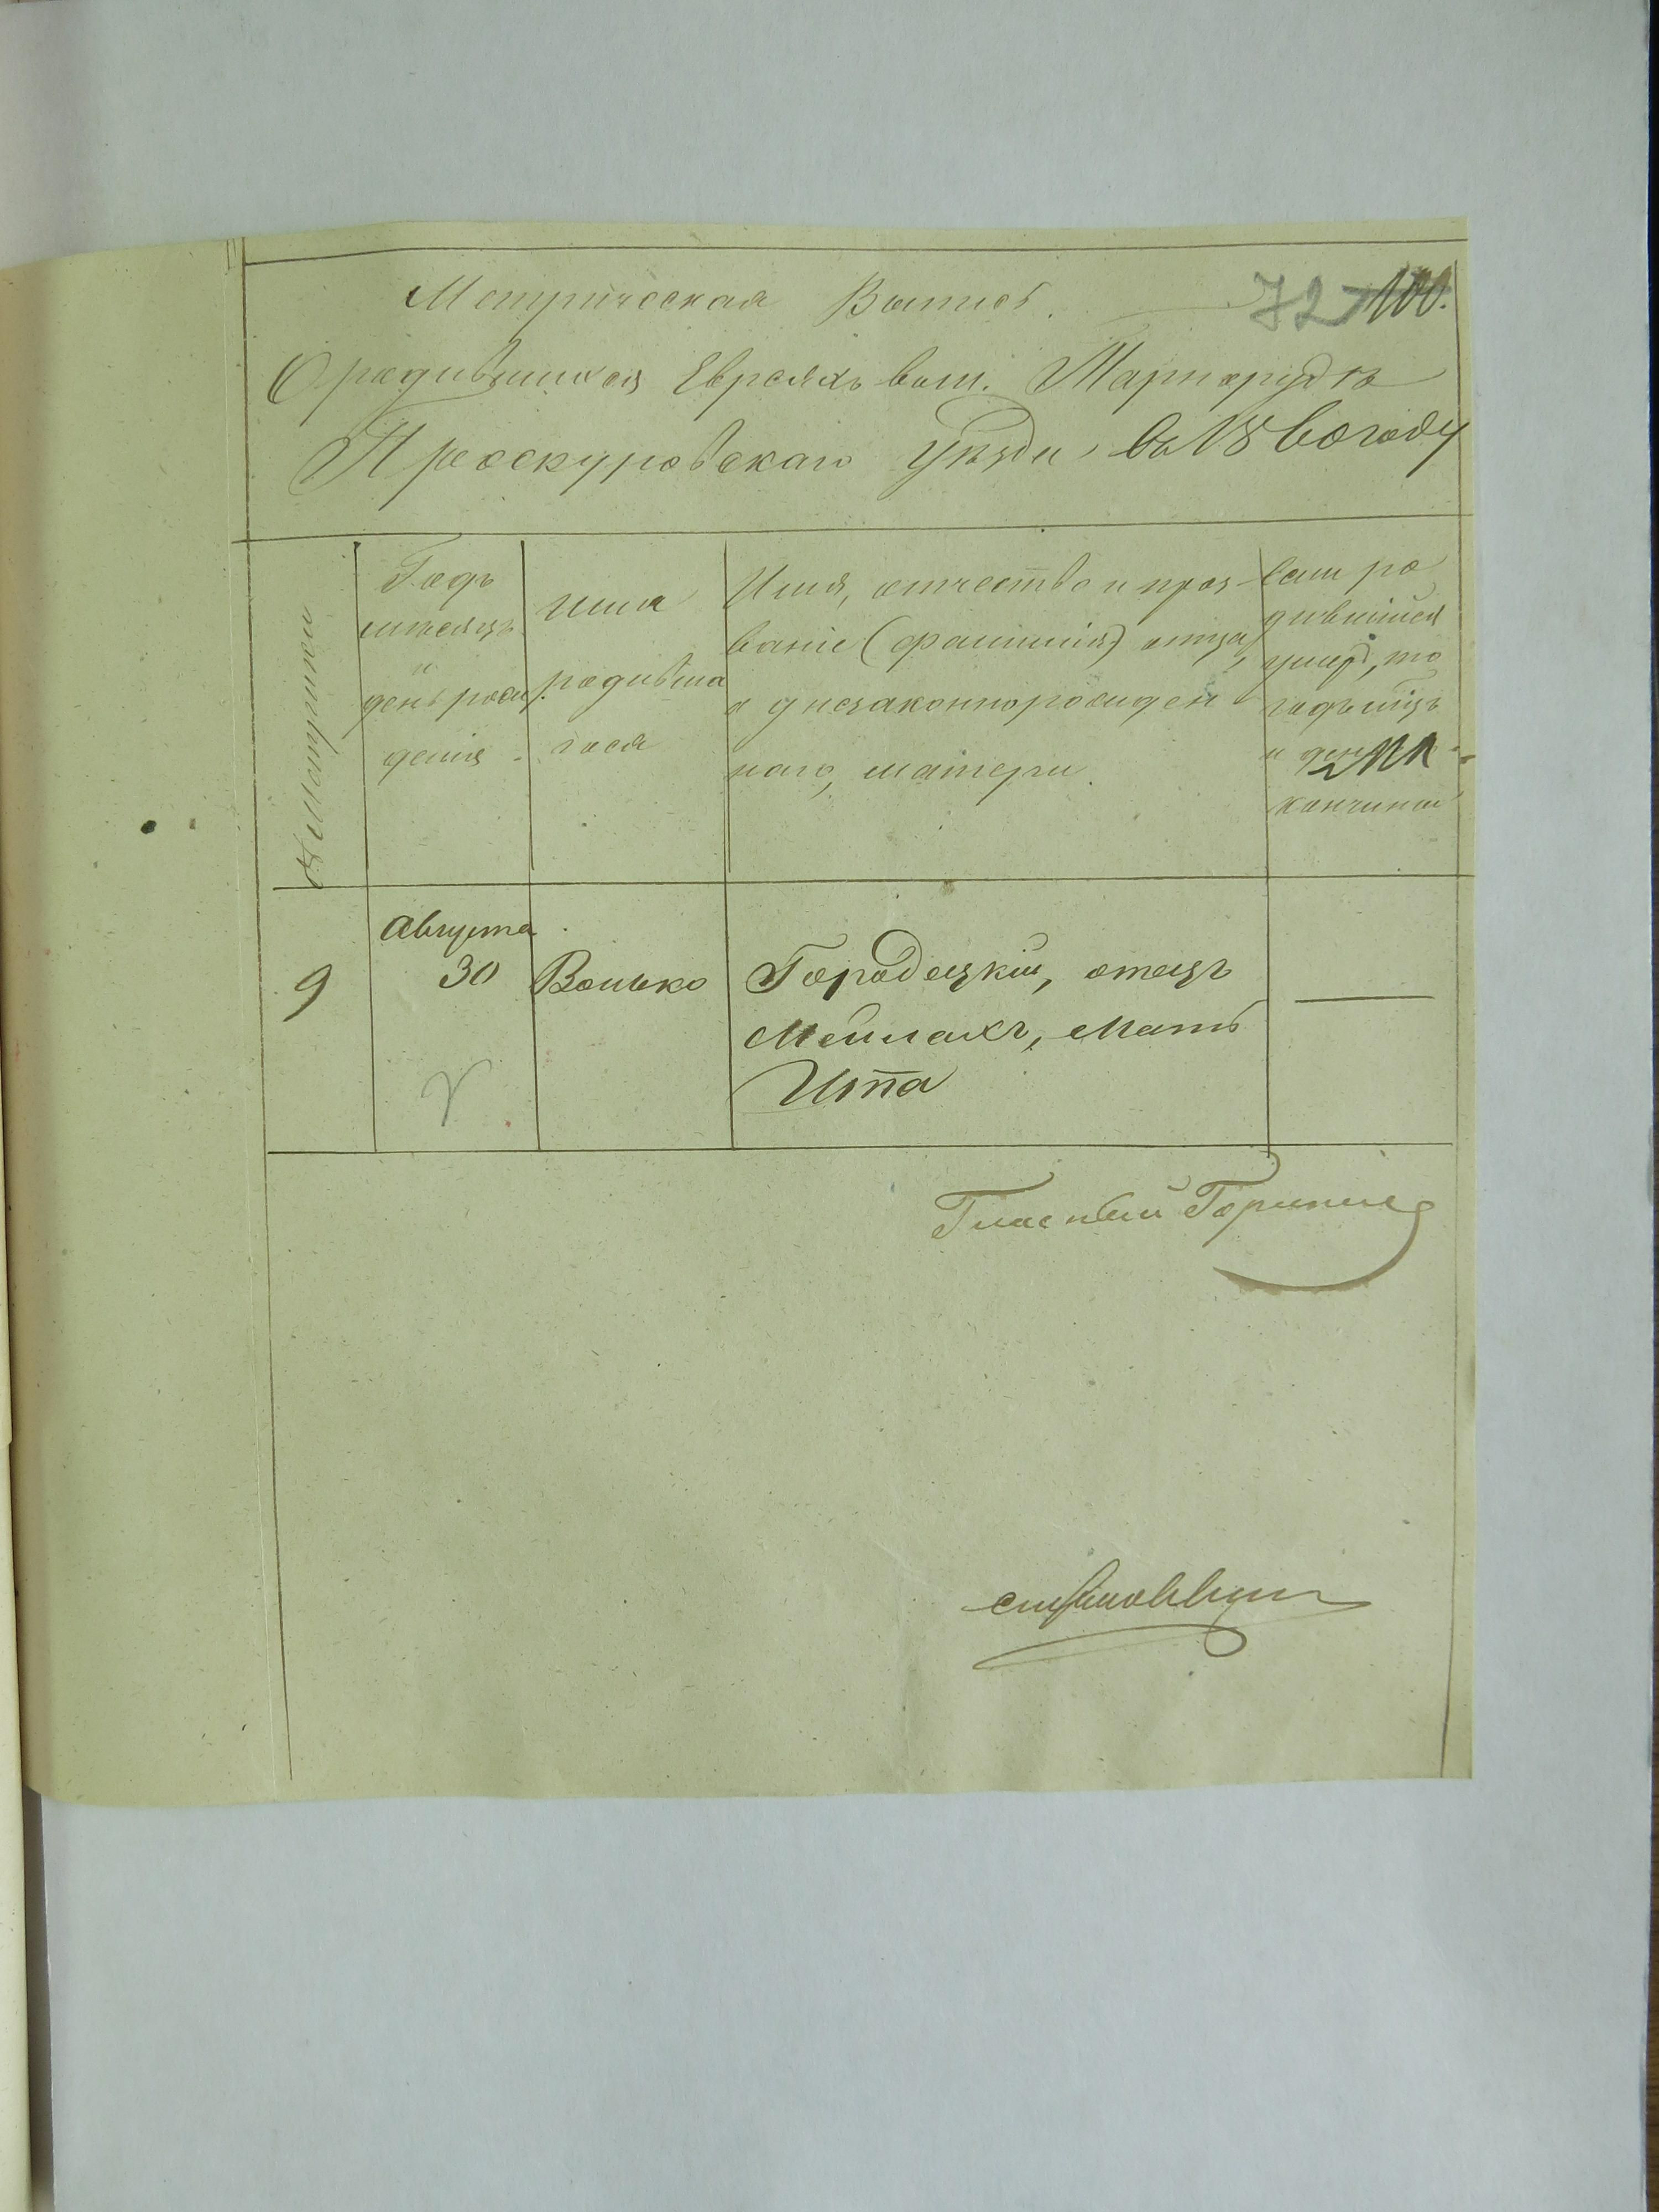 Метрическая Выпись. 72
О родившихся Евреяхъ въ м. Тарнорудѣ
Проскуровскаго уѣзда, въ 1860 году
№ Метрики
Годъ
мѣсяцъ
и
день рож
денія
имя
родивша
гося
Имя, отчество и проз-
ваніе (фамилія) отца,
а у незаконнорожден
наго, матери.
Если ро
дившійся
умеръ, то
годъ мѣцъ
и день
кончины
9
Августа
30
Волько
Городецкій, отецъ
Мейлахъ, Мать
Ита
Гласный